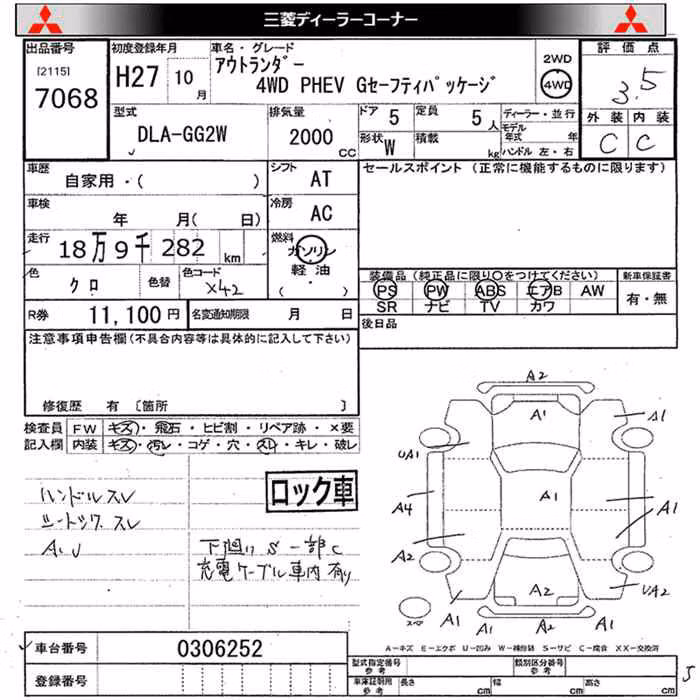 三菱ディーラーコーナー
出品番号
[2115]
7068
初度登録年月
H27 10月
車名・グレード
アウトランダー
4WD PHEV Gセーフティパッケージ
2WD
4WD
評価点
3.5
外装 内装
C C
型式
DLA-GG2W
排気量
2000 CC
ドア 5
定員 5人
形状 W
積載 kg
ディーラー・並行
モデル年式 年
ハンドル 左・右
車歴
自家用・( )
シフト
AT
セールスポイント (正常に機能するものに限ります)
車検
年 月( 日)
冷房
AC
走行
18万9千282 km
燃料
ガソリン
軽油
( )
色
クロ
色替
色コード
X42
装備品 (純正品に限り○をつけてください)
PS PW ABS エアB AW
SR ナビ TV カワ
新車保証書
有・無
R券 11,100円
名変通知期限 月 日
後日品
注意事項申告欄(不具合内容等は具体的に記入して下さい)
修復歴 有 〔箇所 〕
検査員 FW キズ・飛石・ヒビ割・リペア跡・×要
記入欄 内装 キズ・汚レ・コゲ・穴・スレ・キレ・破レ
ハンドルスレ
A.U
ロック車
下廻り S 一部C
充電ケーブル車内有り
A2
A1
A1
UA1
A1
A4
A1
A2
A2
UA2
A1
A2
A1
スペア
A-キズ E-エクボ U-凹み W-補修跡 S-サビ C-腐食 XX-交換済
車台番号 0306252
登録番号
型式指定番号 参考
類別区分番号 参考
車庫証明用 参考
長さ cm 幅 cm 高さ cm